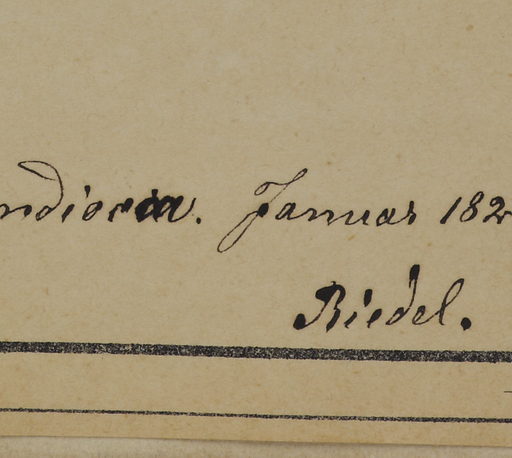 ndiocca. Januar 182
Riedel.